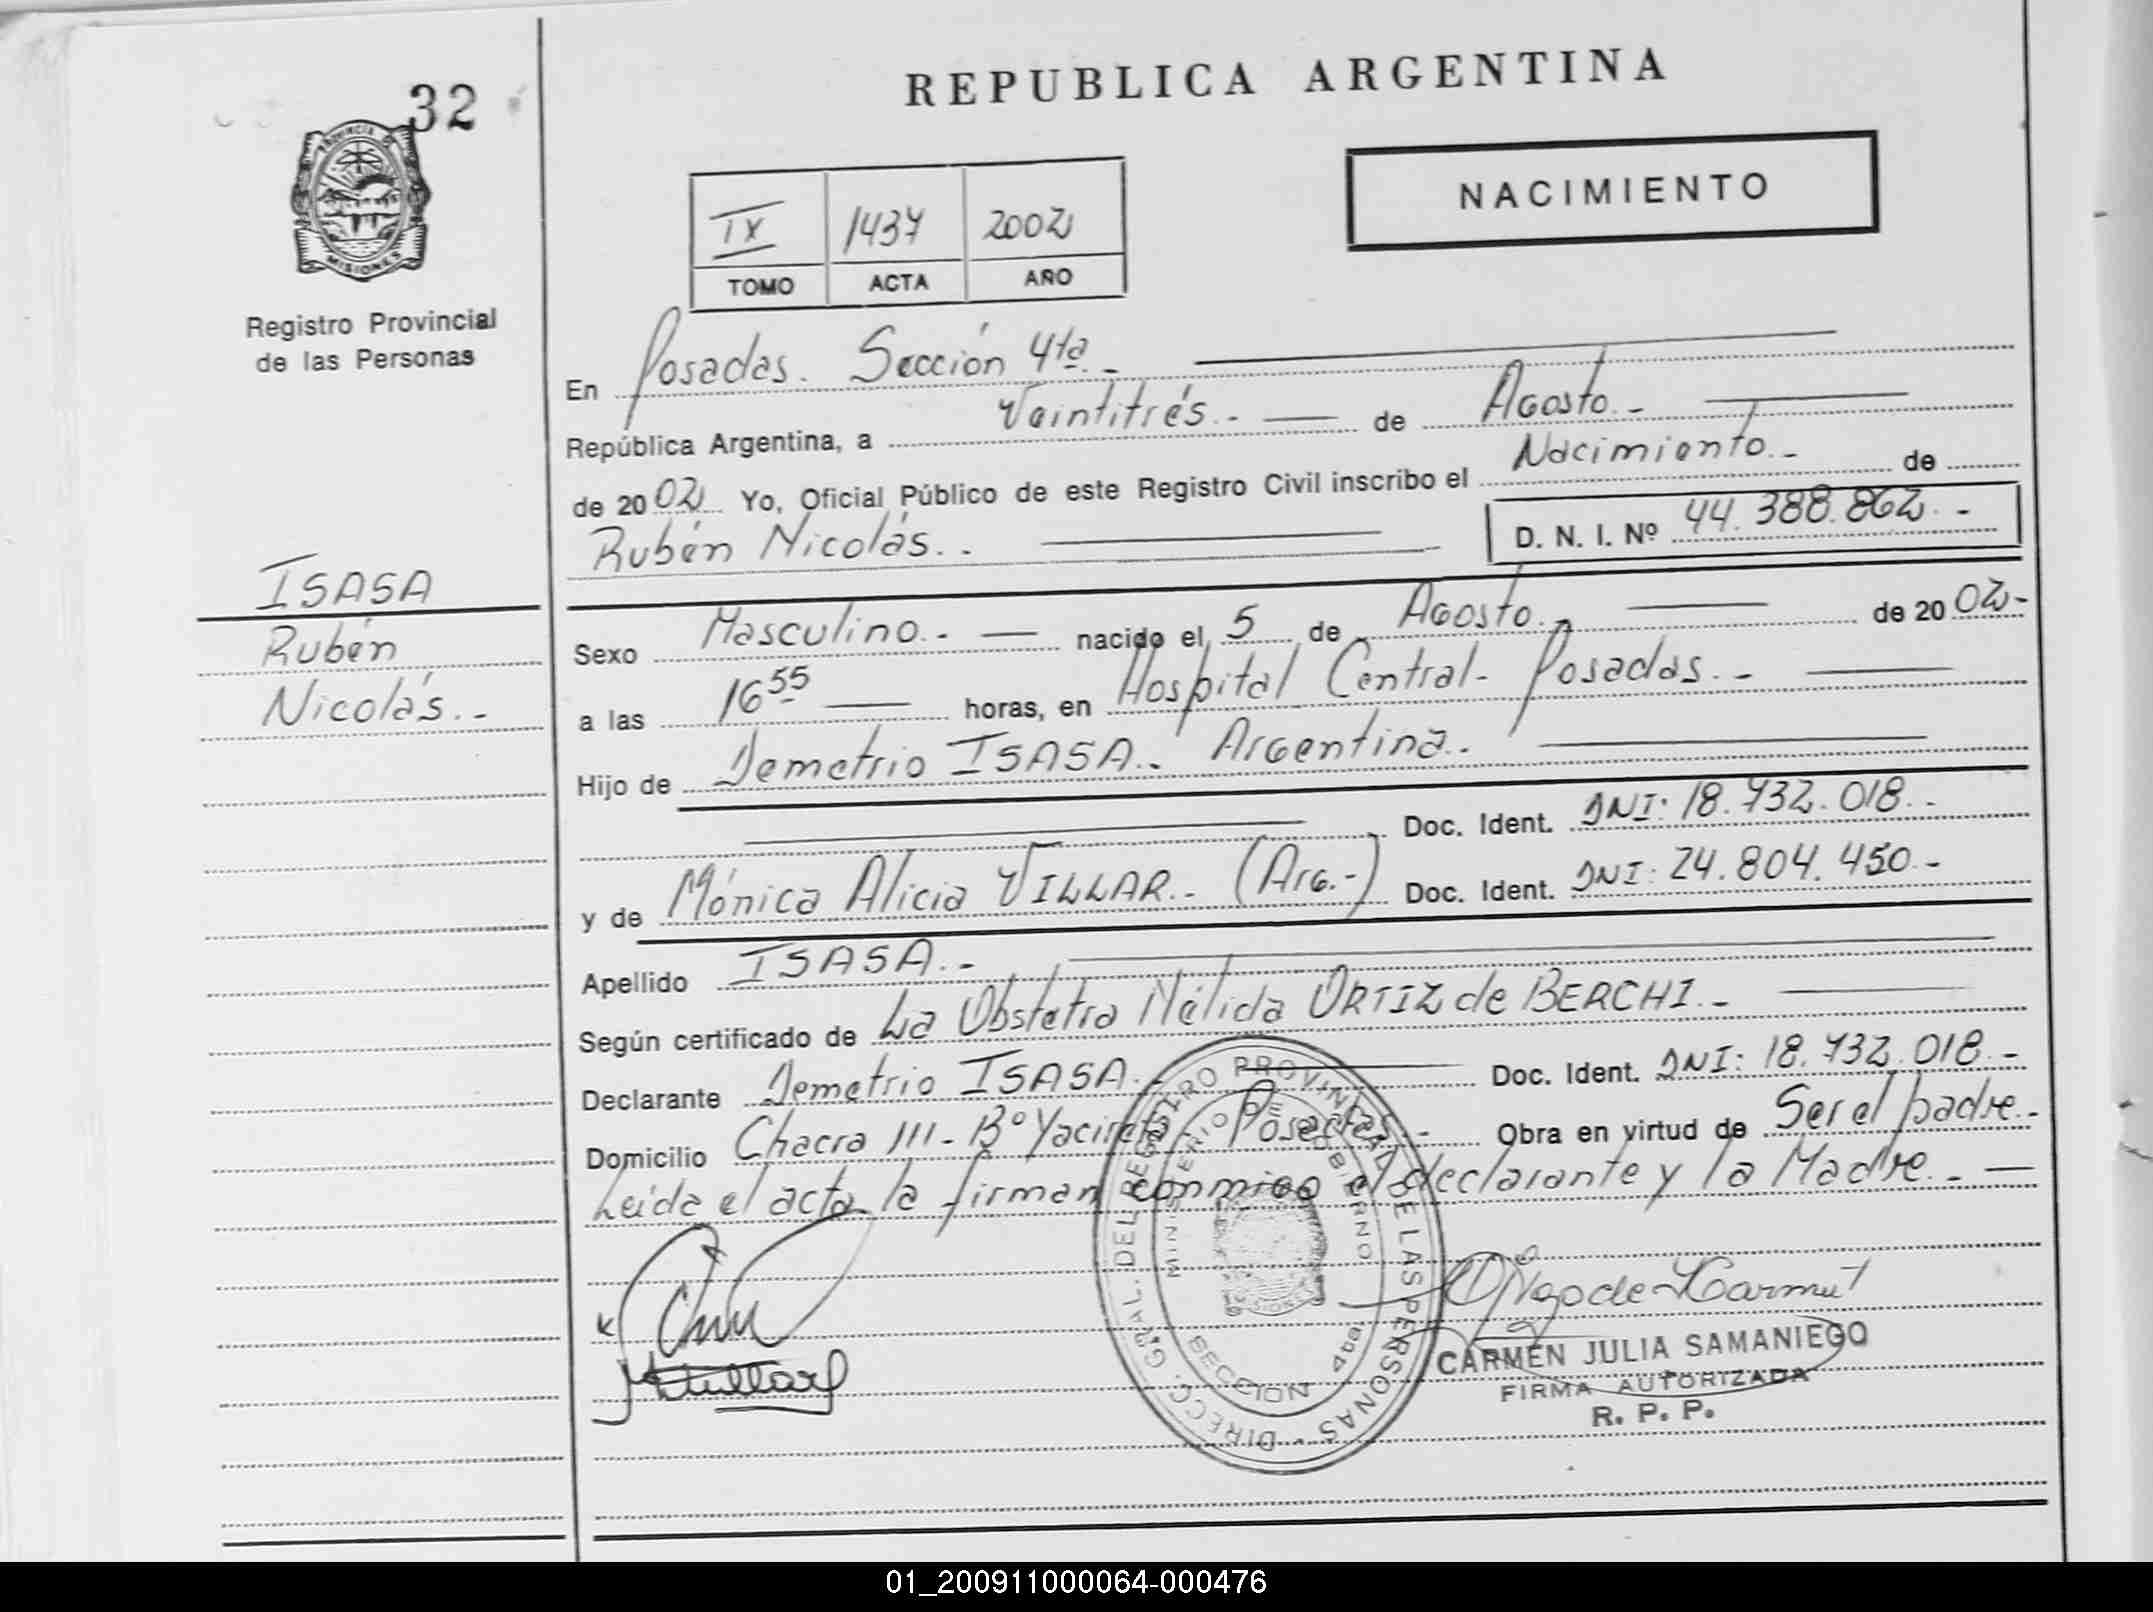 32
REPUBLICA ARGENTINA
PROVINCIA DE
MISIONES
Registro Provincial
de las Personas
NACIMIENTO
IX 1437 2002
TOMO ACTA AÑO
En Posadas. Sección 4ta.-
República Argentina, a Veintitrés.- de Agosto.-
de 20 02 Yo, Oficial Público de este Registro Civil inscribo el Nacimiento.- de
Rubén Nicolás.. D. N. I. Nº 44.388.862.-
ISASA
Rubén
Nicolás.-
Sexo Masculino.- nacido el 5 de Agosto.- de 20 02-
a las 16 55 horas, en Hospital Central- Posadas.-
Hijo de Demetrio ISASA.- Argentina.
Doc. Ident. DNI: 18.732.018.-
y de Mónica Alicia VILLAR.- (Arg.-) Doc. Ident. DNI: 24.804.450.-
Apellido ISASA.-
Según certificado de La Obstetra Nélida ORTIZ de BERCHI.-
Declarante Demetrio ISASA.- Doc. Ident. DNI: 18.732.018.-
Domicilio Chacra 111- Bº Yacireta Posadas.- Obra en virtud de Ser el padre.-
Leida el acta la firman conmigo el declarante y la Madre.-
DIRECC. GRAL. DEL REGISTRO PROVINCIAL DE LAS PERSONAS -
MINISTERIO DE GOBIERNO
SECCION 4ta
MISIONES
CARMEN JULIA SAMANIEGO
FIRMA AUTORIZADA
R. P. P.
01_200911000064-000476